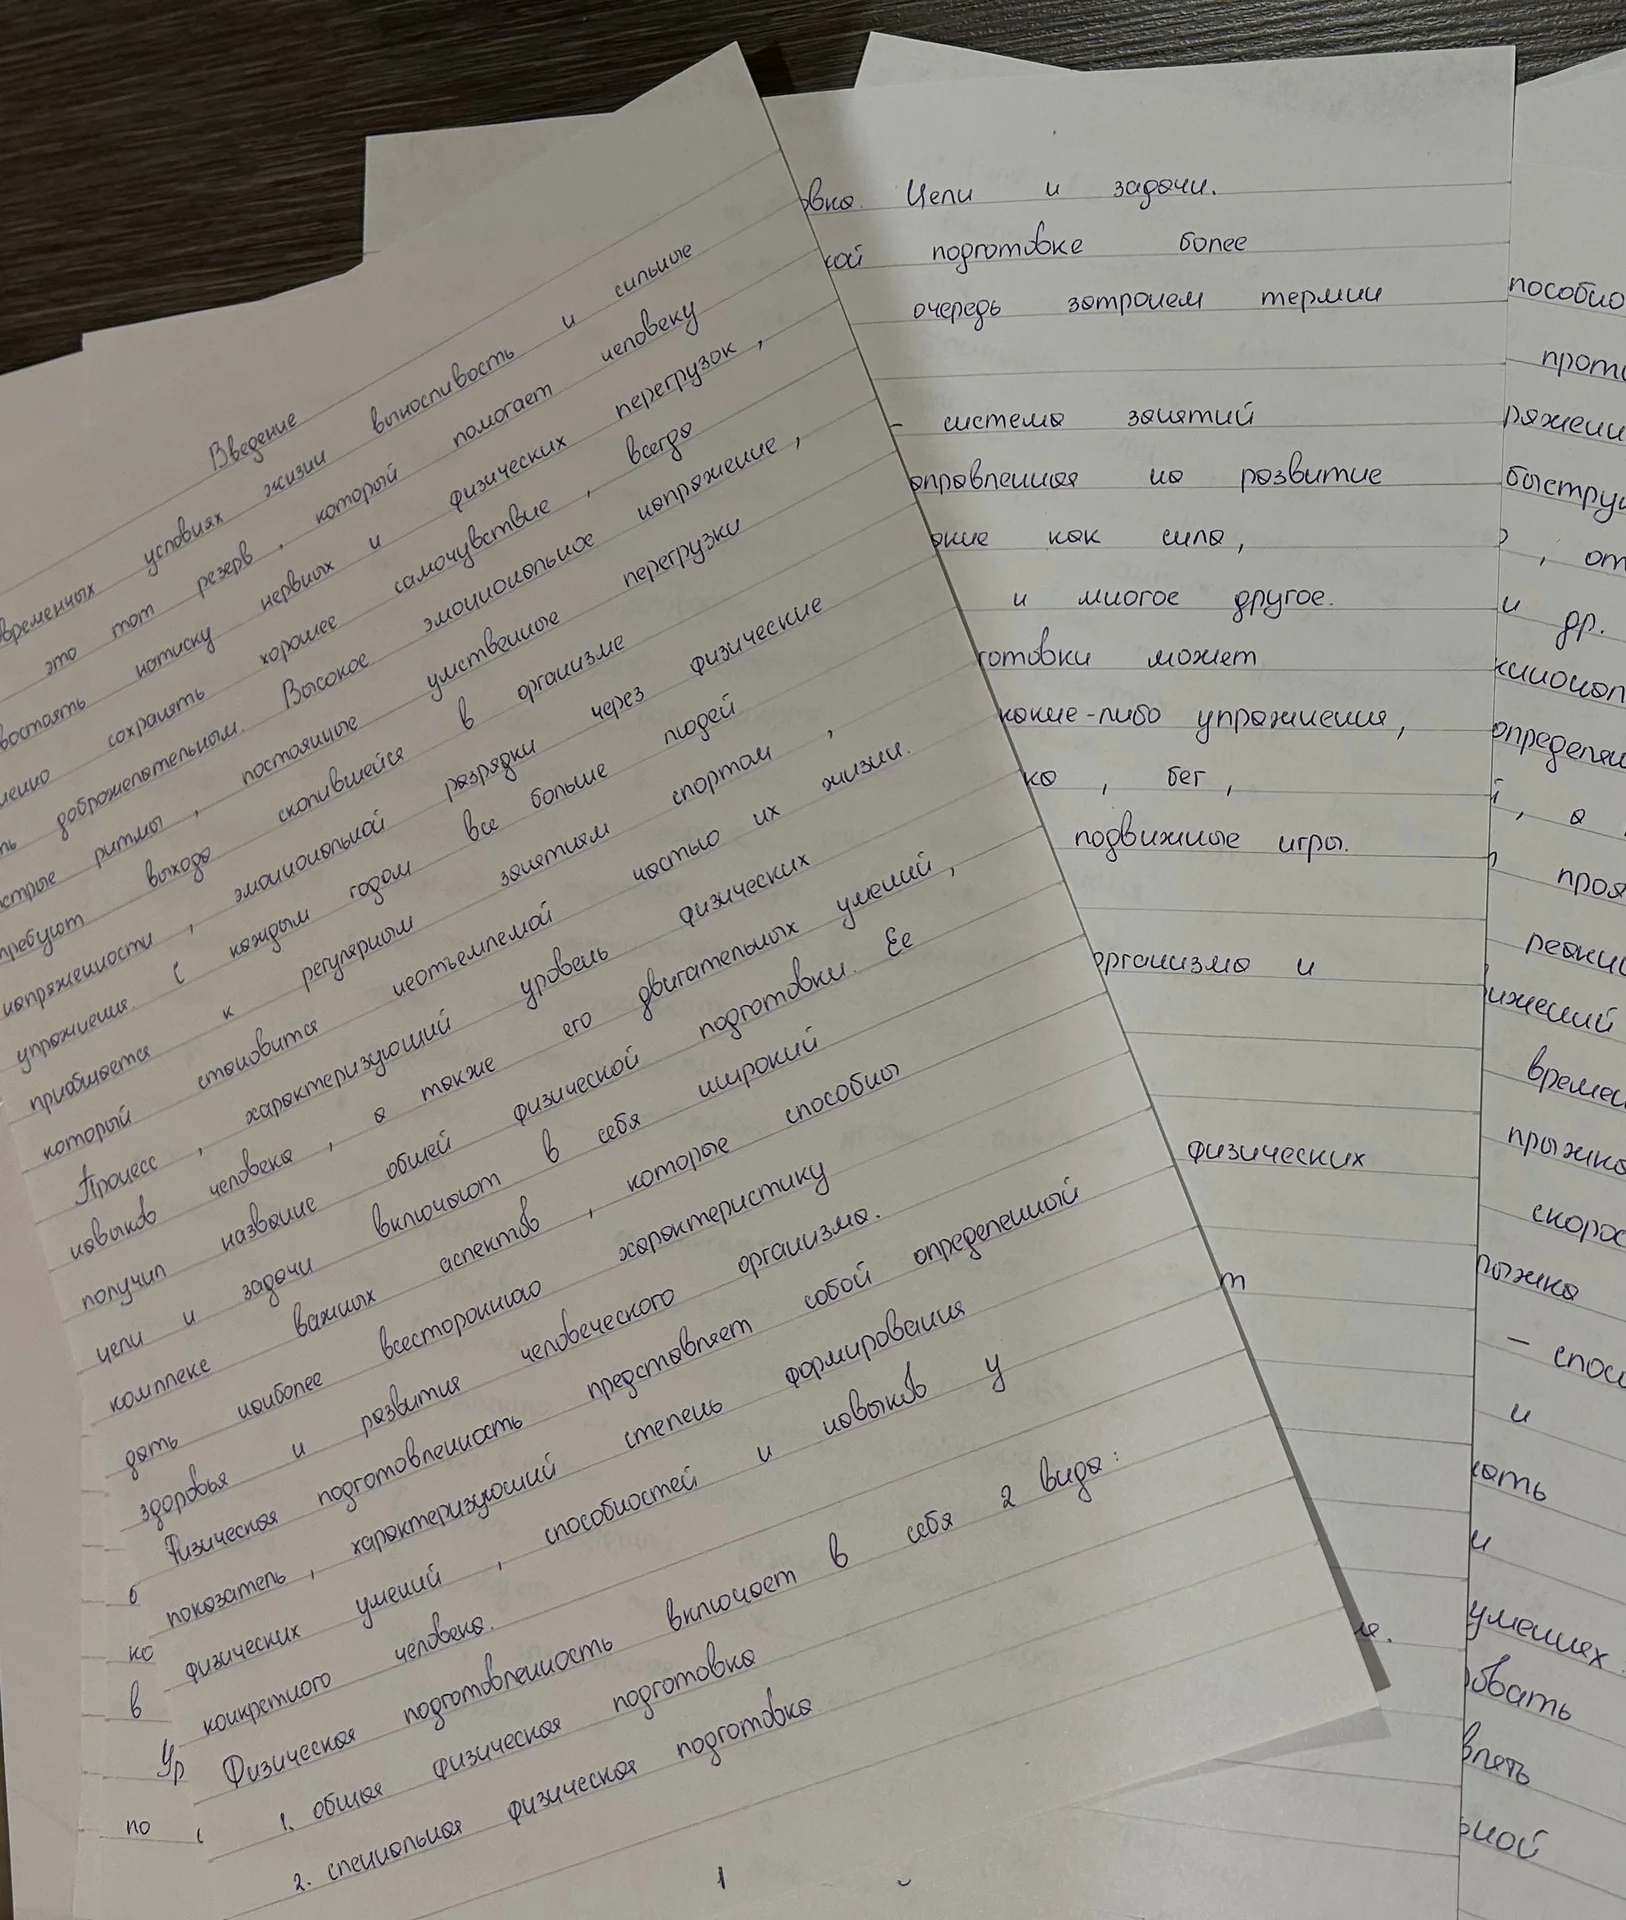 Введение
временных условиях жизни выносливость и сильные
это тот резерв, который помогает человеку
востоять натиску нервных и физических перегрузок,
менно сохранять хорошее самочувствие, всегда
ть доброжелательным. Высокое эмоциональное напряжение,
стрые ритмы, постоянные умственные перегрузки
требуют выхода скопившейся в организме
напряженности, эмоциональной разрядки через физические
упражнения. С каждым годом все больше людей
приобщается к регулярным занятиям спортом,
который становится неотъемлемой частью их жизни.
Процесс, характеризующий уровень физических
навыков человека, а также его двигательных умений,
получил название общей физической подготовки. Ее
цели и задачи включают в себя широкий
комплекс важных аспектов, которые способны
дать наиболее всестороннюю характеристику
здоровья и развития человеческого организма.
Физическая подготовленность представляет собой определенный
показатель, характеризующий степень формирования
физических умений, способностей и навыков у
конкретного человека.
Физическая подготовленность включает в себя 2 вида:
1. общая физическая подготовка
2. специальная физическая подготовка
1
б
ко
в
Ур
по
овка. Цели и задачи.
кой подготовке более
очередь затронем термин
- система занятий
аправленная на развитие
акие как сила,
и многое другое.
готовки может
какие-либо упражнения,
ка, бег,
подвижные игры.
организма и
физических
т
ия.
пособно
проти
ряжени
быстру
, от
и др.
кционал
определя
й, а
проя
реакц
ижений
времен
прыжка
скорос
рыжка
- спос
и
кать
и
умениях
овать
влять
ьной